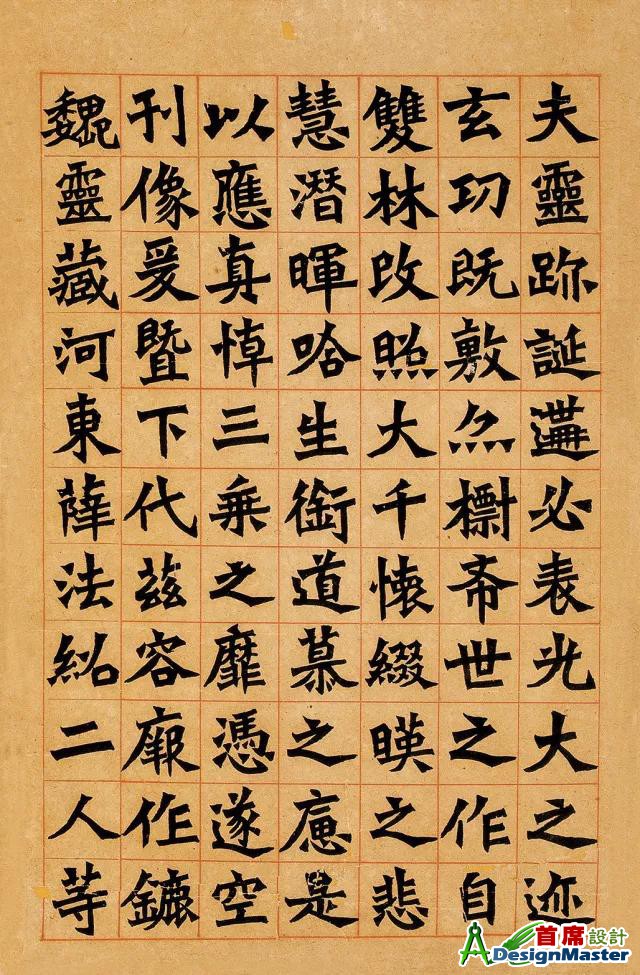 夫靈跡誕遘必表光大之迹
玄功既敷亦摽希世之作自
雙林改照大千懷綴暎之悲
慧潛暉啥生銜道慕之痛是
以應真悼三乘之靡憑遂空
刊像爰暨下代茲容厥作鑣
魏靈藏河東薛法紹二人等
首席設計
DesignMaster